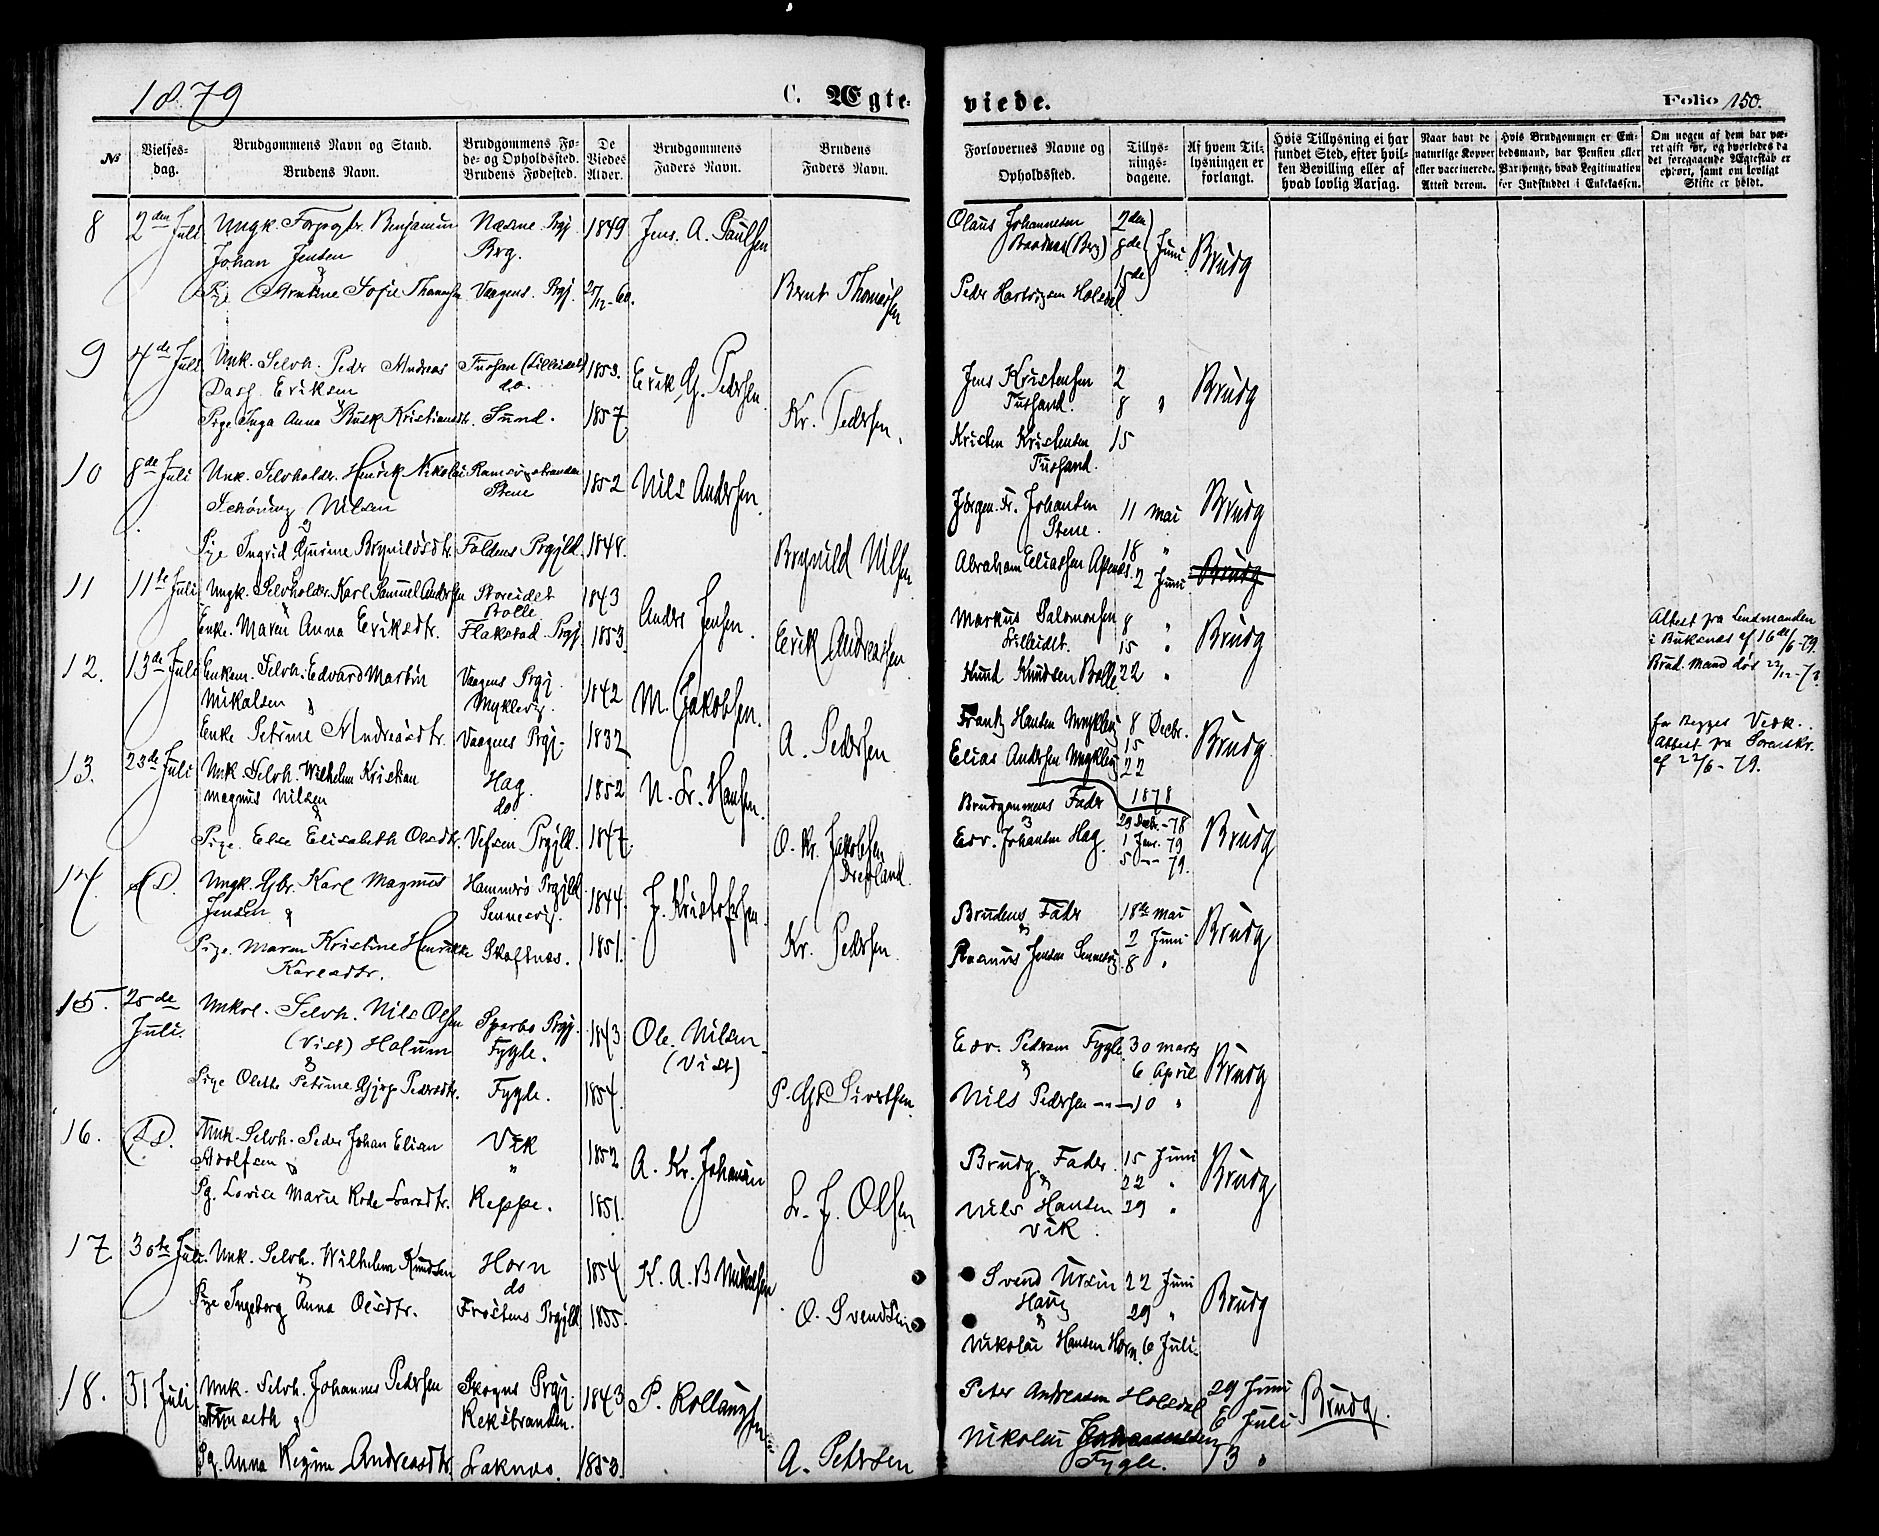 1879
C. Ægte-
№
Vielses-
dag.
Brudgommens Navn og Stand.
Brudens Navn.
Brudgommens Fø-
de- og Opholdssted.
Brudens Fødested.
De
Viedes
Alder.
Brudgommens
Faders Navn.
Brudens
Faders Navn.
8 2den Juli Ungk. Benjamin Næsne Prgj. 1849 Jens. A. Paulsen
Johan Jensen Brg.
&
Sofie Vaagens. Prgj. 27/12-60. Bernt Thomassen
9 4de Juli Unk. Selvh. Peder Andreas 1853. Erik Pedersen.
Eriksen do.
Pige Inga Anna Busk Kristiansdtr. Sund. 1857 Kr. Pedersen.
10 8de Juli Unk. Selvholder. Henrik Nikolai 1852 Nils Andersen.
Schöning Nilsen Stene
&
Pige Ingrid Brynildsdtr. Foldens Prgjld. 1848. Brynild Nilsen
11 11te Juli Ungk. Selvholder. Karl Samuel Andersen Storeidet 1843 Anders Jensen.
& Bolle
Enke. Maren Anna Eriksdtr. Flakstad Prgj. 1853 Erik Andreassen
12. 13de Juli Enkem. Selvh. Edvard Martin Vaagens Prgj. 1842 M. Jakobsen.
Mikalsen & Myklevig.
Enke Petrine Andreasdtr. Vaagens Prgj. 1832 A. Pedersen
13. 23de Juli Unk. Selvh. Wilhelm Kristian Hag. 1852 N. Hansen.
Magnus Nilsen do
&
Pige. Else Elisabeth Olsdtr. Vefsen Prgjld. 1847. O. Kr. Jakobsen
Drevland.
14. S.D. Ungk. Karl Magnus Hammerö Prgjld. 1844. J. Kristofersen.
Jensen & Sennesvig.
Pige. Maren Kristine Henrikke Skolfnæs. 1851. Kr. Pedersen.
15. 25de Selvh. Nils Olsen Sparbo Prgj. 1843 Ole. Nilsen
Juli. (Vist) Holum Fygle. (Vist)
&
Pige Olette Petrine Pedersdtr. Fygle. 1854. P. Sivertsen
16. S.D. Unk. Selvh. Peder Johan Elisen Vik 1852 A. Kr. Johansen
Adolfsen & "
Pg. Lovise Marie Larsdtr. Reppe. 1851. J. Olsen
17 30te Juli. Unk. Selvh. Wilhelm Knudsen Horn 1854 K. A. B. Mikalsen
& do
Pige Ingeborg Anna Olsdtr. Frostens Prgjld 1855. O. Svendsen
18. 31 Juli Unk. Selvh. Johannes Pedersen Skogns Prgj. 1843 P. Kollaugsen
& Rekstranden.
Pg. Anna Regine Andreasdtr. Leknæs. 1853. A. Petersen
viede.
Folio 150.
Forlovernes Navne og
Opholdssted.
Tillys-
nings-
dagene.
Af hvem Til-
lysningen er
forlangt.
Hvis Tillysning ei har
fundet Sted, efter hvil-
ken Bevilling eller af
hvad lovlig Aarsag.
Naar havt de
naturlige Kopper
eller vaccinerede.
Attest derom.
Hvis Brudgommen er Em-
bedsmand, har Pension eller
Vartpenge, hvad Legitimation
for Indskuddet i Enkekassen.
Om nogen af dem har væ-
ret gift før, og hvorledes da
det foregaaende Ægteskab er
ophørt, samt om lovligt
Skifte er holdt.
Olaus Johannesen 2den
(Berg) 8de Juni Brudg
15de
Peder Hartvigsen Holsdal
Jens Kristensen 2 Brudg
8 "
Kristen Kristensen 15
Jørgen. Fr. Johansen 11 Mai Brudg
Stene.
18 "
Abraham Eliassen 2 Juni Brudg
Markus Salomonsen 8 " Brudg
Lilleidet. 15 "
Knud Knudsen Bolle 22 "
Attest fra Lensmanden
i Buksnæs af 16de/6-79.
Brud. Mand død 22/12-73.
Frantz Hansen Myklevig 8 Decbr. Brudg
15
Elias Andersen Myklevig 22
1878
for begges Vedk.
Attest fra Sorenskr.
af 22/6-79.
Brudgommens Fader 29 Decbr.-78
& 1 Janr. 79 Brudg
Edv. Johansen Hag. 5 -"- 79.
Brudens Fader 18de Mai Brudg
& 2 Juni
Rasmus Jensen Sennesvig 8 "
Edv. Pedersen Fygle. 30 Marts Brudg
& 6 April
Nils Pedersen -"- 10 "
Brudg. Fader. 15 Juni Brudg
& 22 "
Nils Hansen 29 "
Vik.
Svend Ursin 22 Juni Brudg
Haug 29 "
&
Nikolai Hansen Horn. 6 Juli.
Peter Andreasen Holsdal 29 Juni Brudg.
6 Juli
Nikolai Johannesen
Fygle. 13 "